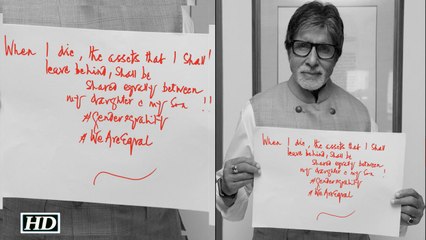 When I die, the assets that I shall
leave behind, shall be
shared equally between
my daughter & my son !!
#GenderEquality
#WeAreEqual
HD
When I die, the assets that I shall
leave behind, shall be
shared equally between
my daughter & my son !
#GenderEquality
#WeAreEqual